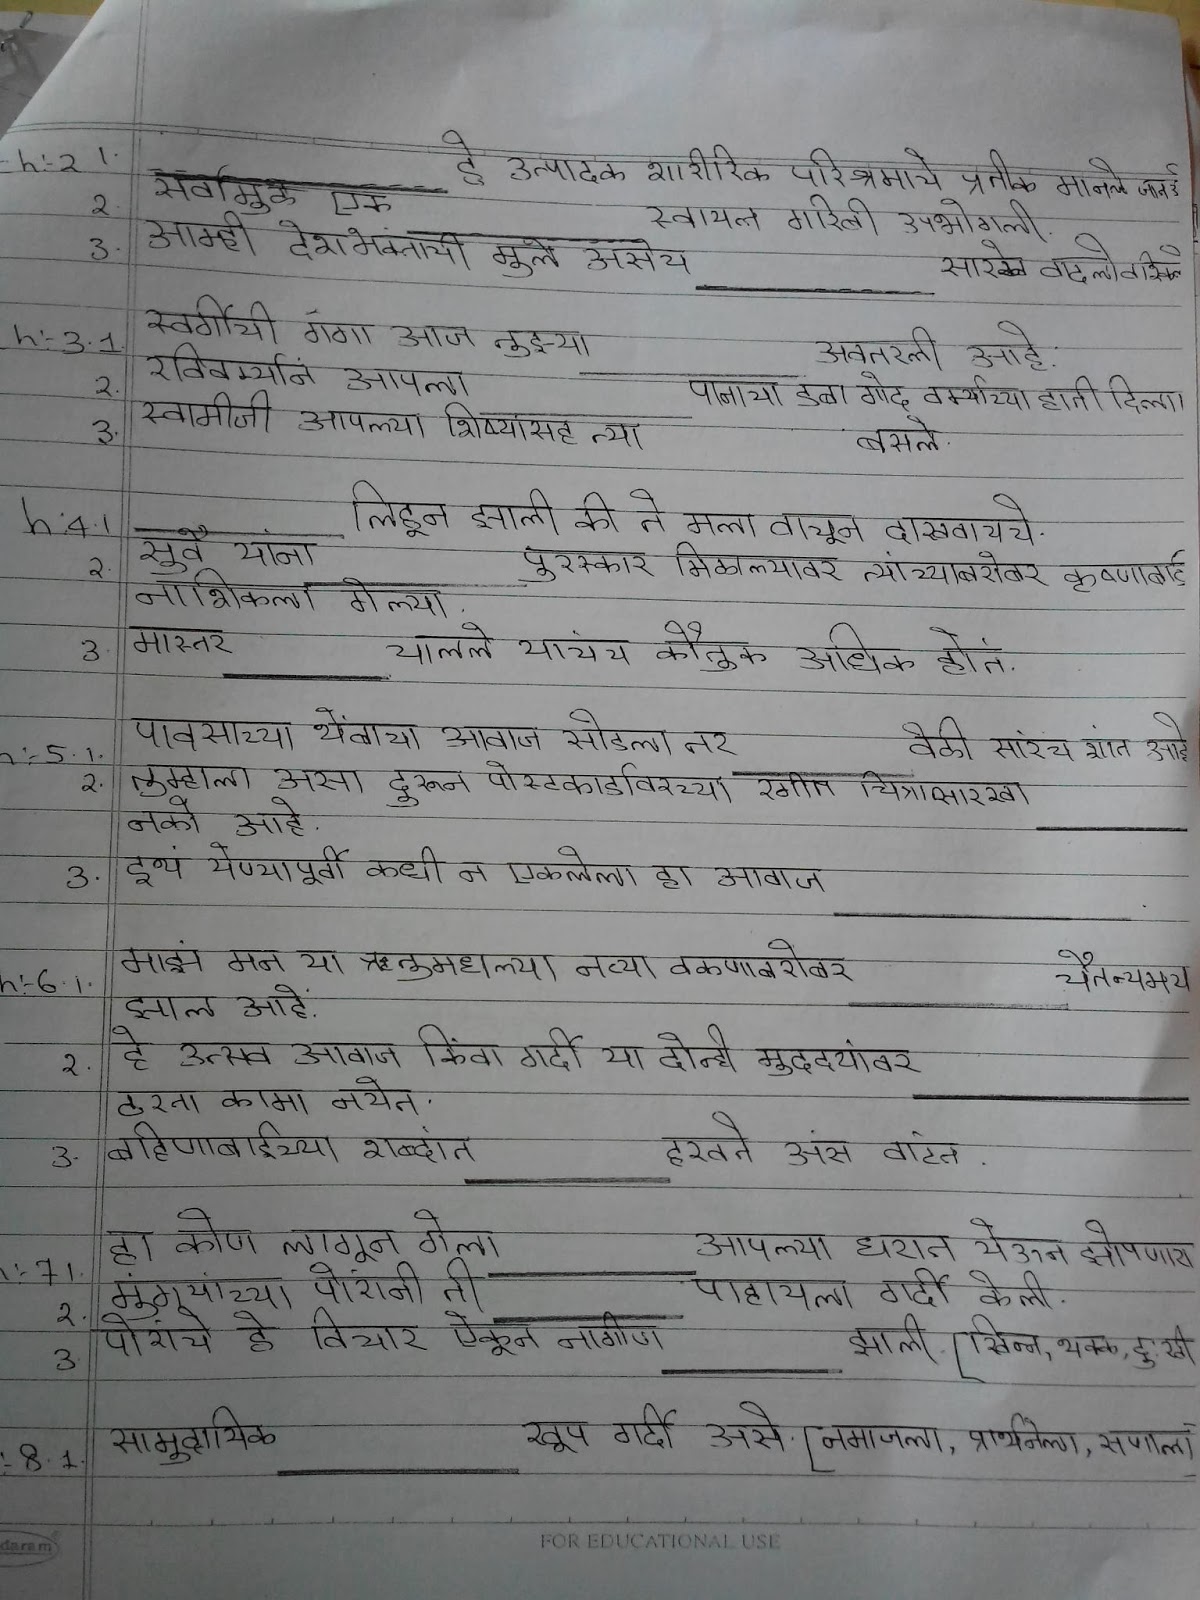 h:-2 1. ________ हे उत्पादक शारीरिक परिश्रमाचे प्रतीक मानले जाई
2. सर्वामुक एक ________ स्वायत्त गरिबी उपभोगली.
3. आम्ही देशभक्तांची मुले असेच ________ सारखे वाढलो
h:-3.1 स्वर्गीची गंगा आज तुझ्या ________ अवतरली आहे.
2. रविवर्म्यानं आपला ________ पानाचा डबा गोद वर्म्याच्या हाती दिला।
3. स्वामीजी आपल्या शिष्यांसह त्या ________ बसले.
h:4.1 ________ लिहून झाली की ते मला वाचून दाखवायचे.
2. सुर्वे यांना ________ पुरस्कार मिळाल्यावर त्यांच्याबरोबर कृष्णाबाई
नाशिकला गेल्या.
3. मास्तर ________ चालले याचंच कौतुक अधिक होतं.
h:-5.1. पावसाच्या थेंबाचा आवाज सोडला तर ________ वेळी सारंच शांत आहे
2. तुम्हाला असा दुरून पोस्टकार्डावरच्या रंगीत चित्रासारखा ________
नको आहे.
3. इथं येण्यापूर्वी कधी न एकलेला हा आवाज ________
h:-6.1. माझं मन या ऋतुमधल्या नव्या वळणाबरोबर ________ चैतन्यमय
झालं आहे.
2. हे उत्सव आवाज किंवा गर्दी या दोन्ही मुददयांवर ________
ठरता कामा नयेत.
3. बहिणाबाईच्या शब्दांत ________ हरवते असं वाटंत.
:-71. हा कोण लागून गेला ________ आपल्या घरात येऊन झोपणारा
2. मुंग्यांच्या पोरांनी ती ________ पाहायला गर्दी केली.
3 पोरांचे हे विचार ऐकून नागीण ________ झाली. [खिन्न, थक्क, दुःखी
:-8.1. सामुदायिक ________ खूप गर्दी असे. [नमाजला, प्रार्थनेला, सणाला
daram FOR EDUCATIONAL USE